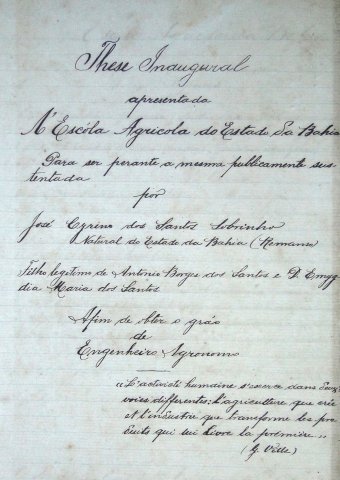 These Inaugural
apresentada
A' Escóla Agricola do Estado da Bahia
Para ser perante a mesma publicamente sus-
tentada
por
José Cyrino dos Santos Sobrinho
Natural do Estado da Bahia (Remanso)
Filho legitimo de Antonio Borges dos Santos e D. Emyg
dia Maria dos Santos
Afim de obter o gráo
de
Engenheiro Agronomo
"L'activité humaine s'exerce dans deux
voies differentes: l'agriculture que crie
et l'industrie que transforme les pro
duits qui lui livre la première"
(G. Ville)